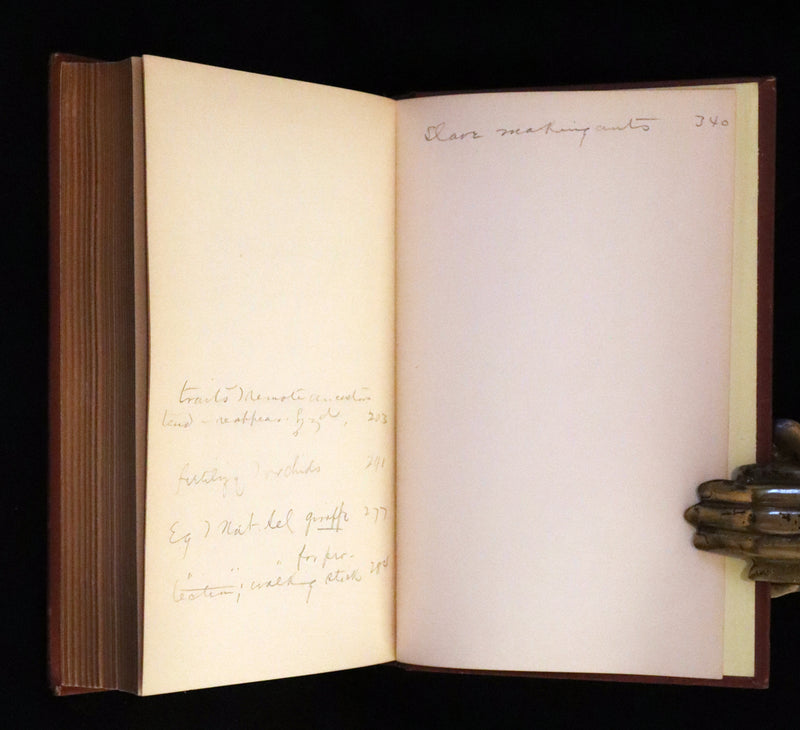 traits ) remote ancestors
tend – reappear. 
fertilizg ) orchids 291
Eg ) Nat. Sel giraffe 277
" " " for pro-
tection; walking stick
Slave making ants 340